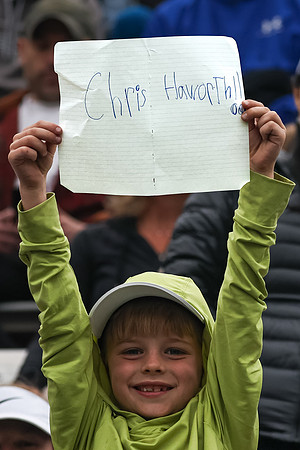 Chris Haworth!!